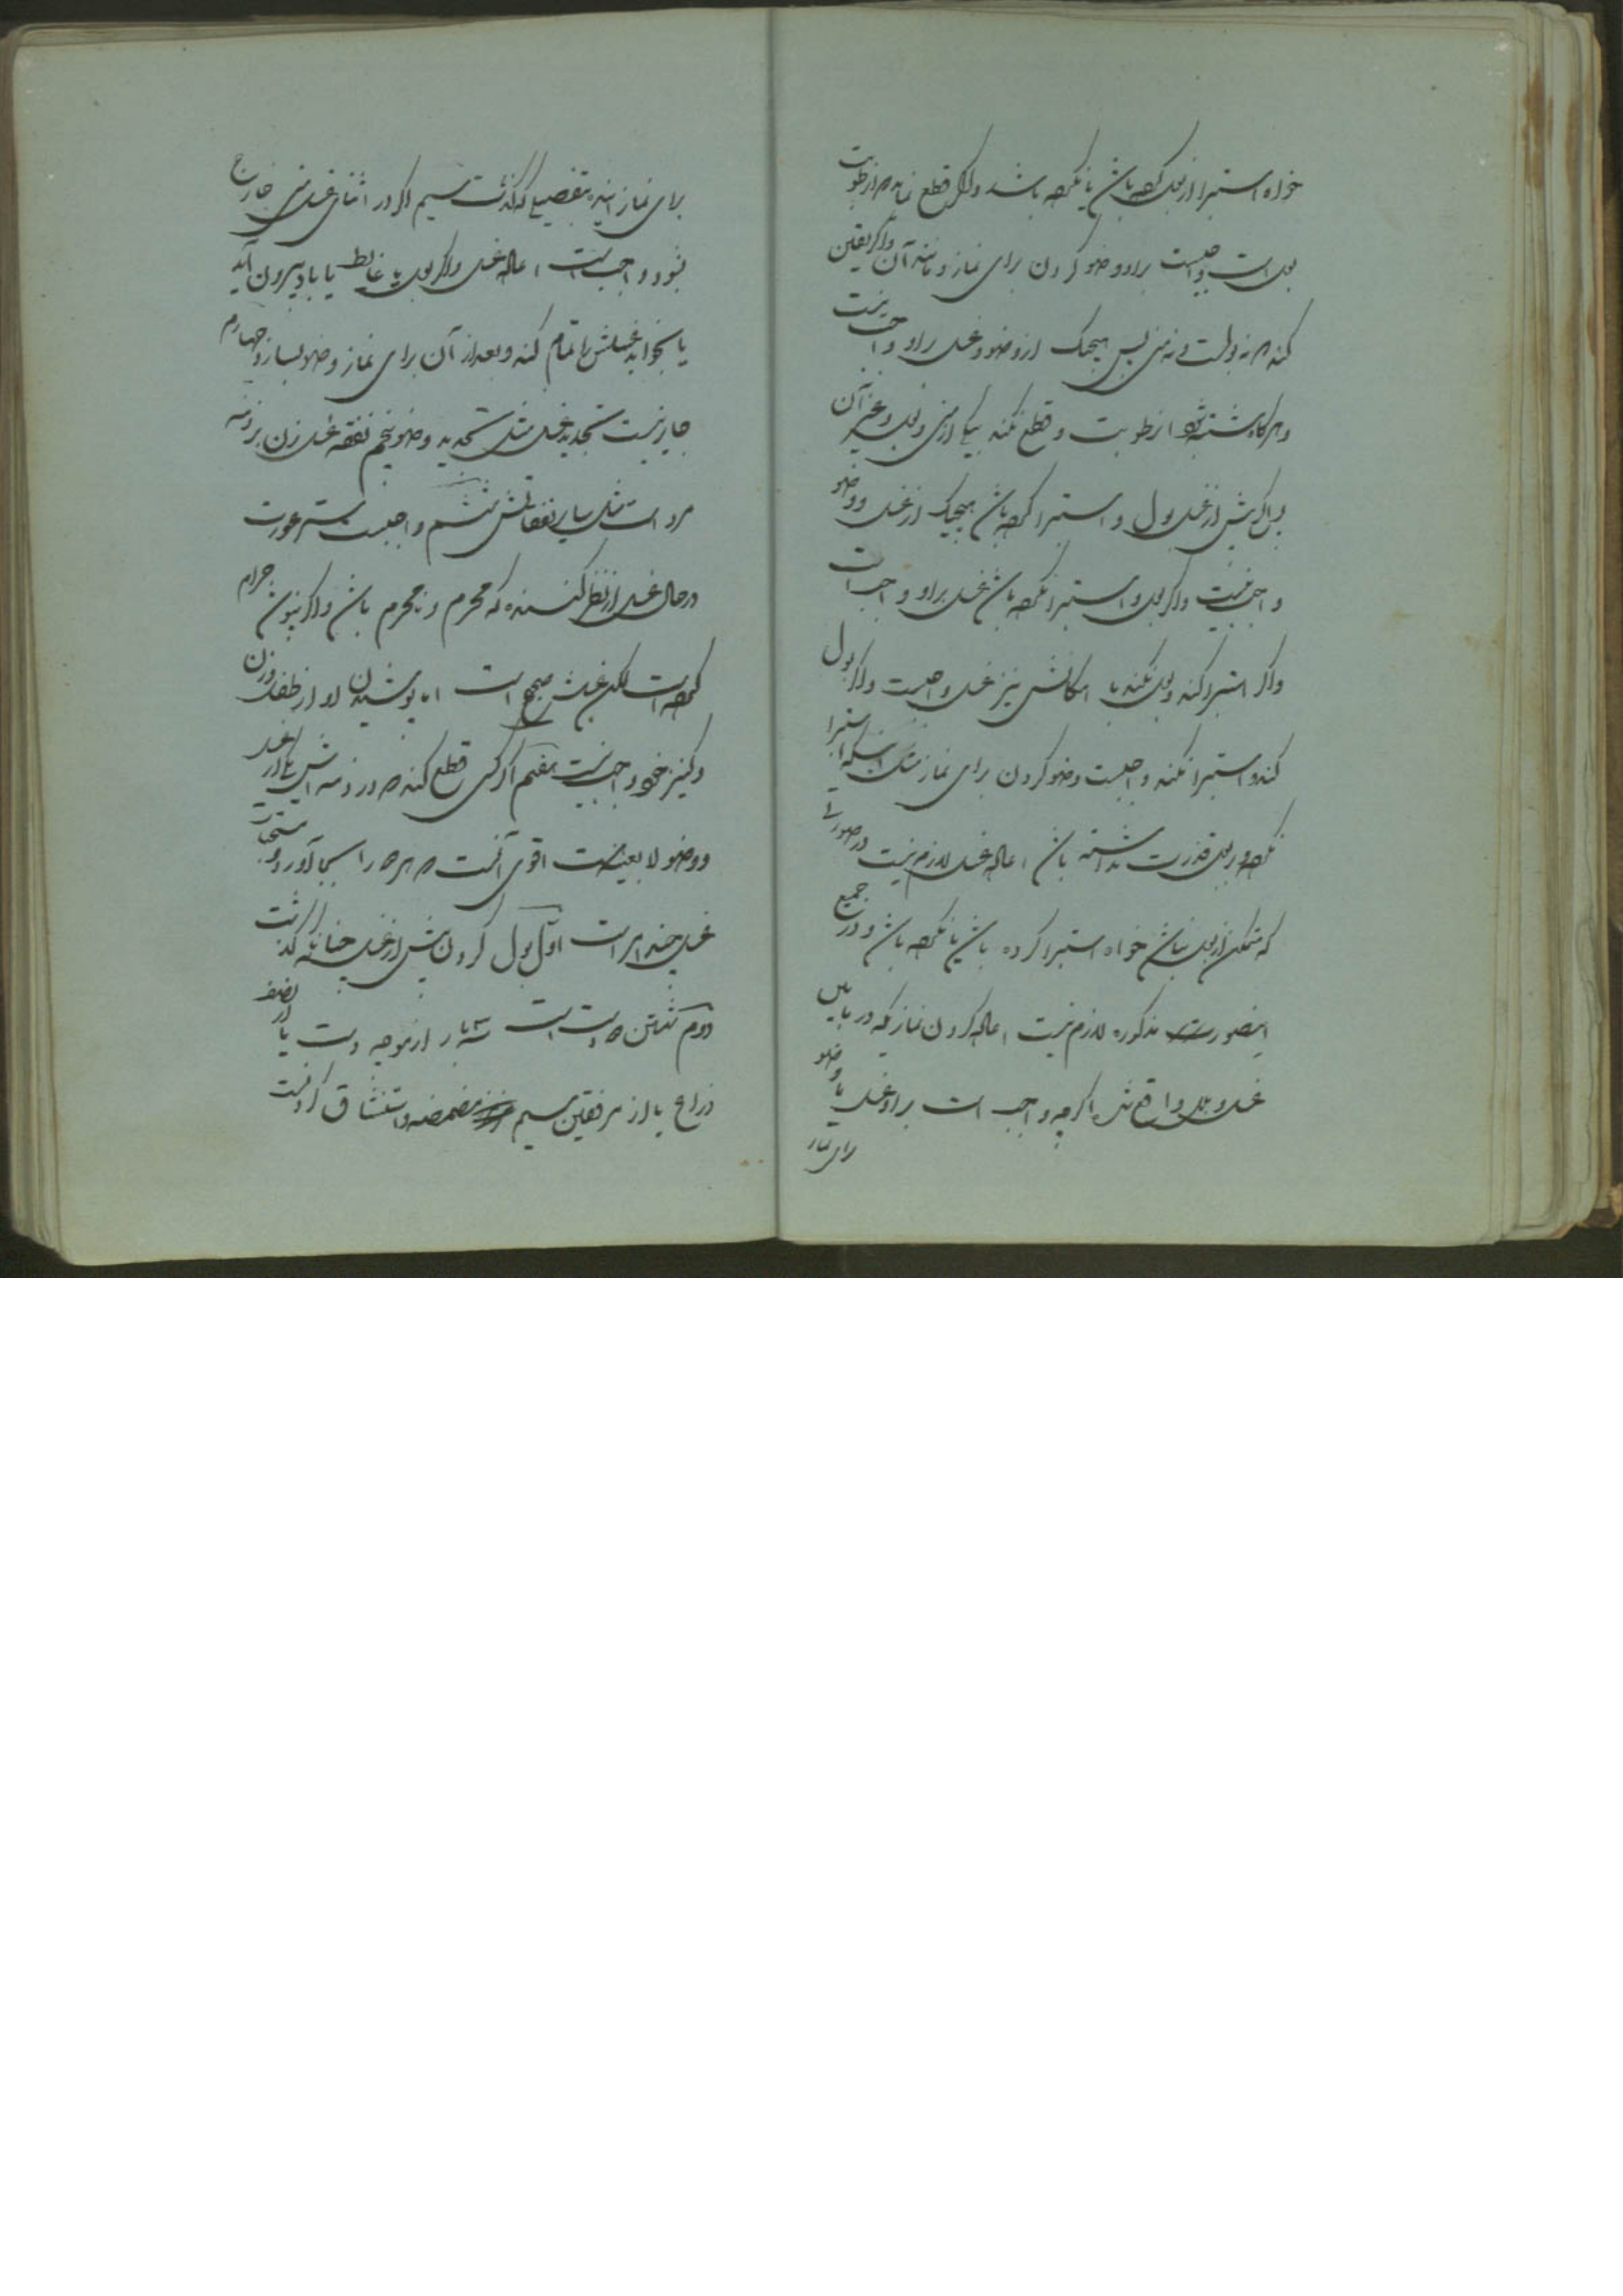 خواه استبرا از بول کرده باشد یا نکرده باشد و اگر قطع نماید که از رطوبت
بول است واجبست بر او وضو کردن برای نماز و مانند آن و اگر یقین
کند که نه بولست و نه منی پس هیچیک از وضو و غسل بر او واجب نیست
و هرگاه مشتبه شود از رطوبت و قطع نکند بیکی از منی و بول و غیر آن
پس اگر پیش از غسل بول و استبرا کرده باشد هیچیک از غسل و وضو
واجب نیست و اگر بول و استبرا نکرده باشد غسل بر او واجب است
و اگر استبرا کند و بول نکند با امکانش نیز غسل واجبست و اگر بول
کند و استبرا نکند واجبست وضو کردن برای نماز مثل اینکه استبرا
نکرده و بر بول قدرت نداشته باشد اعاده غسل لازم نیست در صورتی
که متمکن از بول نباشد خواه استبرا کرده باشد یا نکرده باشد و در جمیع
اینصورت مذکوره لازم نیست اعاده کردن نمازیکه در مابین
غسل و بلل واقع شده اگرچه واجب است بر او غسل یا وضو
برای نماز
برای نماز آینده بتفصیلی که گذشت سیم اگر در اثنای غسل منی خارج
شود واجب است اعاده غسل و اگر بول یا غایط یا باد بیرون آید
یا بخوابد غسلش را تمام کند و بعد از آن برای نماز وضو بسازد چهارم
جایز نیست تجدید غسل مثل تجدید وضو پنجم نفقه غسل زن بر ذمه
مرد است مثل سایر نفقاتش ششم واجبست ستر عورت
در حال غسل از نظر کننده که محرم و نامحرم باشد و اگر نپوشد حرام
کرده است لکن غسلش صحیح است اما پوشیدن او از طفل و زن
و کنیز خود واجب نیست هفتم اگر کسی قطع کند که در ذمه اش یکی از غسل
و وضو لا بعینه است اقوی آنست که هر دو را بجا آورد و مستحبات
غسل چند امر است اول بول کردن پیش از غسل چنانکه گذشت
دوم شستن دست است سه بار از موچه دست یا از نصف
ذراع یا از مرفقین سیم مضمضه و استنشاق کردنست